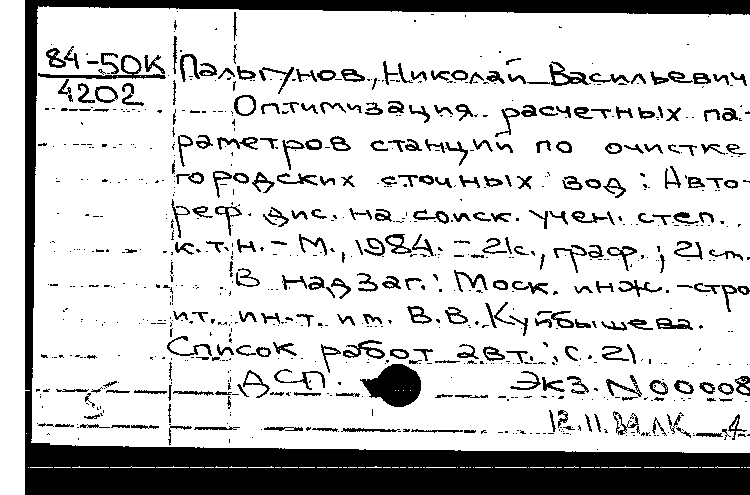 84-50К Пальгунов, Николай Васильевич
4202
Оптимизация расчетных па-
раметров станций по очистке
городских сточных вод : Авто-
реф. дис. на соиск. учен. степ.
к.т.н. – М., 1984. – 21с., граф. ; 21 см.
В надзаг.: Моск. инж.-стро
ит. ин-т. им. В.В. Куйбышева.
Список работ авт.: с. 21.
ДСП. Экз. N 00008
5 12.11.84 ЛК 4